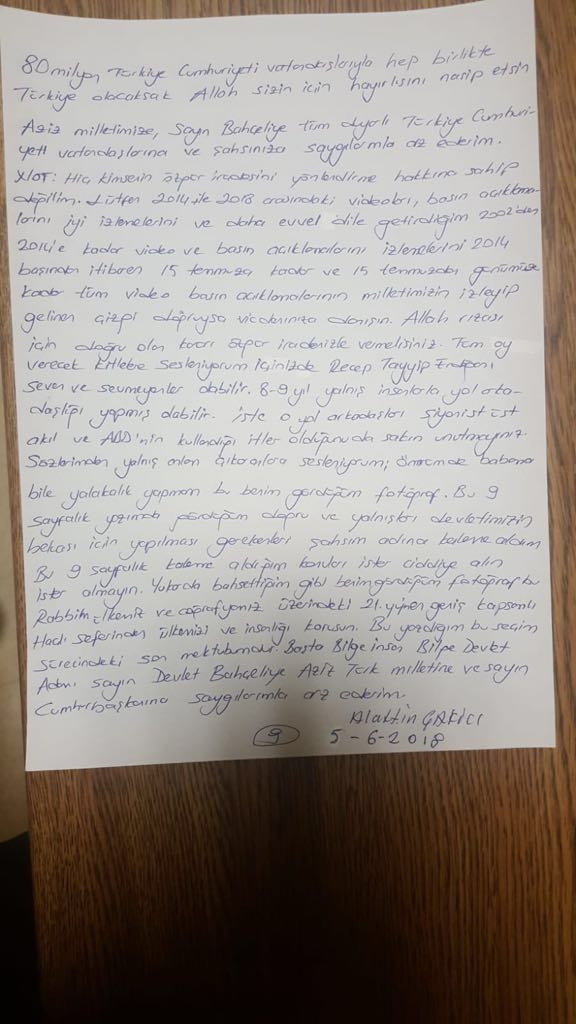 80 milyon Türkiye Cumhuriyeti vatandaşlarıyla hep birlikte
Türkiye olacaksak Allah sizin için hayırlısını nasip etsin
Aziz milletimize, Sayın Bahçeliye tüm Türkiye Cumhuri-
yeti vatandaşlarına ve şahsınıza saygılarımla arz ederim.
NOT: Hiç kimsenin özgür iradesini yönlendirme hakkına sahip
değilim. Lütfen 2014 ile 2018 arasındaki videoları, basın açıklama-
larını iyi izlemelerini ve daha evvel dile getirdiğim 2002'den
2014'e kadar video ve basın açıklamalarını izlemelerini 2014
başından itibaren 15 temmuza kadar ve 15 temmuzdan günümüze
kadar tüm video basın açıklamalarının milletimizin izleyip
gelinen çizgi doğruysa vicdanınıza danışın. Allah rızası
için doğru olan kararı özgür iradenizle vermelisiniz. Tüm oy
verecek kitlelere sesleniyorum içinizde Recep Tayyip Erdoğanı
seven ve sevmeyenler olabilir. 8-9 yıl yalnış insanlarla yol arka-
daşlığı yapmış olabilir. İşte o yol arkadaşları siyonist üst
akıl ve ABD'nin kullandığı itler olduğunu da sakın unutmayınız.
Sözlerimden yalnış anlam çıkaranlara sesleniyorum; babama
bile yalakalık yapmam bu benim gördüğüm fotoğraf. Bu 9
sayfalık yazımda gördüğüm doğru ve yalnışları devletimizin
bekası için yapılması gerekenleri şahsım adına kaleme aldım
Bu 9 sayfalık kaleme aldığım konuları ister ciddiye alın
ister almayın. Yukarıda bahsettiğim gibi benim gördüğüm fotoğraf bu
Rabbim ülkemiz ve coğrafyamız üzerindeki 21. yüzyılın geniş kapsamlı
Haçlı seferinden ülkemizi ve insanlığı korusun. Bu yazdığım bu seçim
sürecindeki son mektubumdur. Başta Bilge insan Bilge Devlet
Adamı Sayın Devlet Bahçeliye Aziz Türk milletine ve sayın
Cumhurbaşkanına saygılarımla arz ederim.
Alattin ÇAKICI
9 5-6-2018